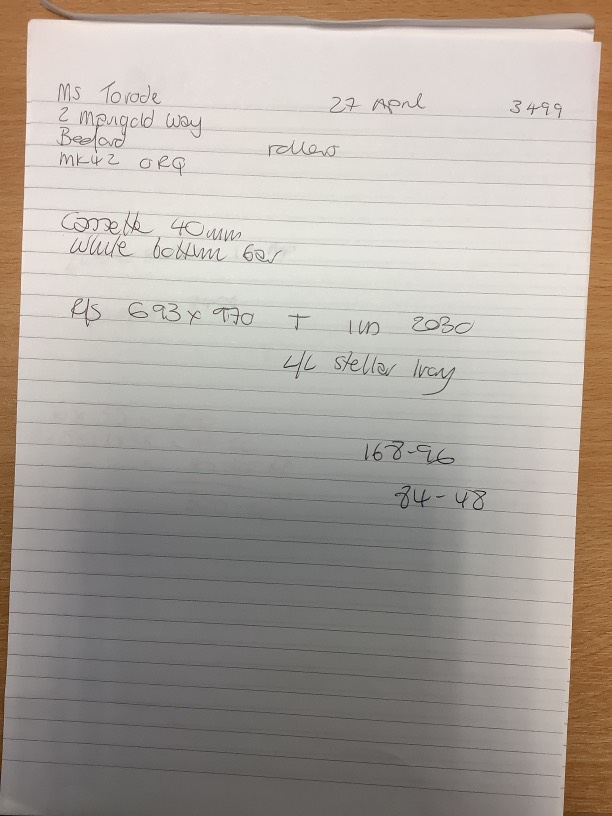 Ms Torode 27 April 3499
2 Marigold Way
Bedford
rollers
MK42 0RQ
Cassette 40mm
White bottom bar
R/S 693 x 970 T 2030
L/L stellar Ivory
168-96
84-48